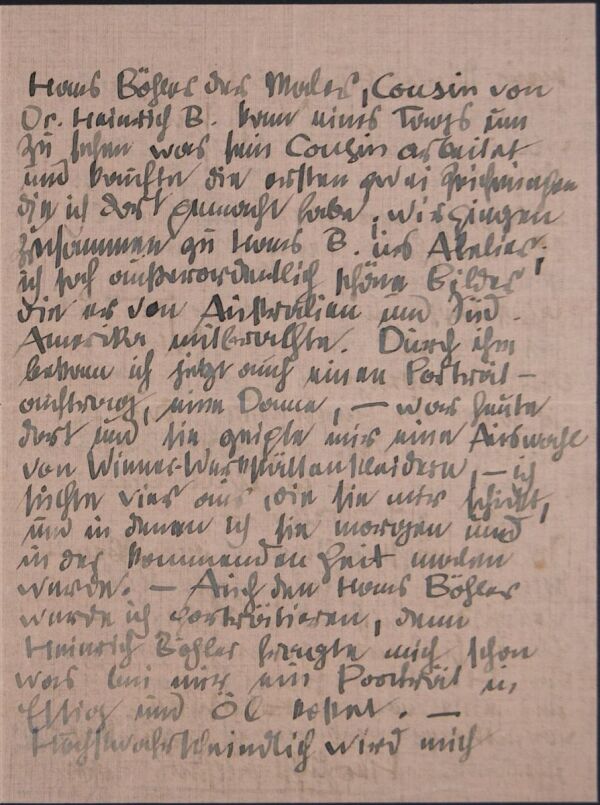 Hans Böhler der Maler, Cousin von
Dr. Heinrich B. kam eines Tags um
zu sehen was sein Cousin arbeitet
und kaufte die ersten zwei Zeichnungen
die ich dort gemacht habe, wir gingen
zusammen zu Hans B. ins Atelier;
ich sah außerordentlich schöne Bilder
die er von Australien und Süd-
Amerika mitbrachte. Durch ihn
bekam ich jetzt auch einen Porträt-
auftrag, eine Dame, — war heute
dort und sie zeigte mir eine Auswahl
von Wiener-Werkstättenkleidern, — ich
suchte vier aus, die sie mir schickt,
und in denen ich sie morgen und
in der kommenden Zeit malen
werde. — Auch den Hans Böhler
werde ich porträtieren, denn
Heinrich Böhler fragte mich schon
was bei mir ein Porträt in
Essig und Öl kostet. —
Höchstwahrscheindlich wird mich